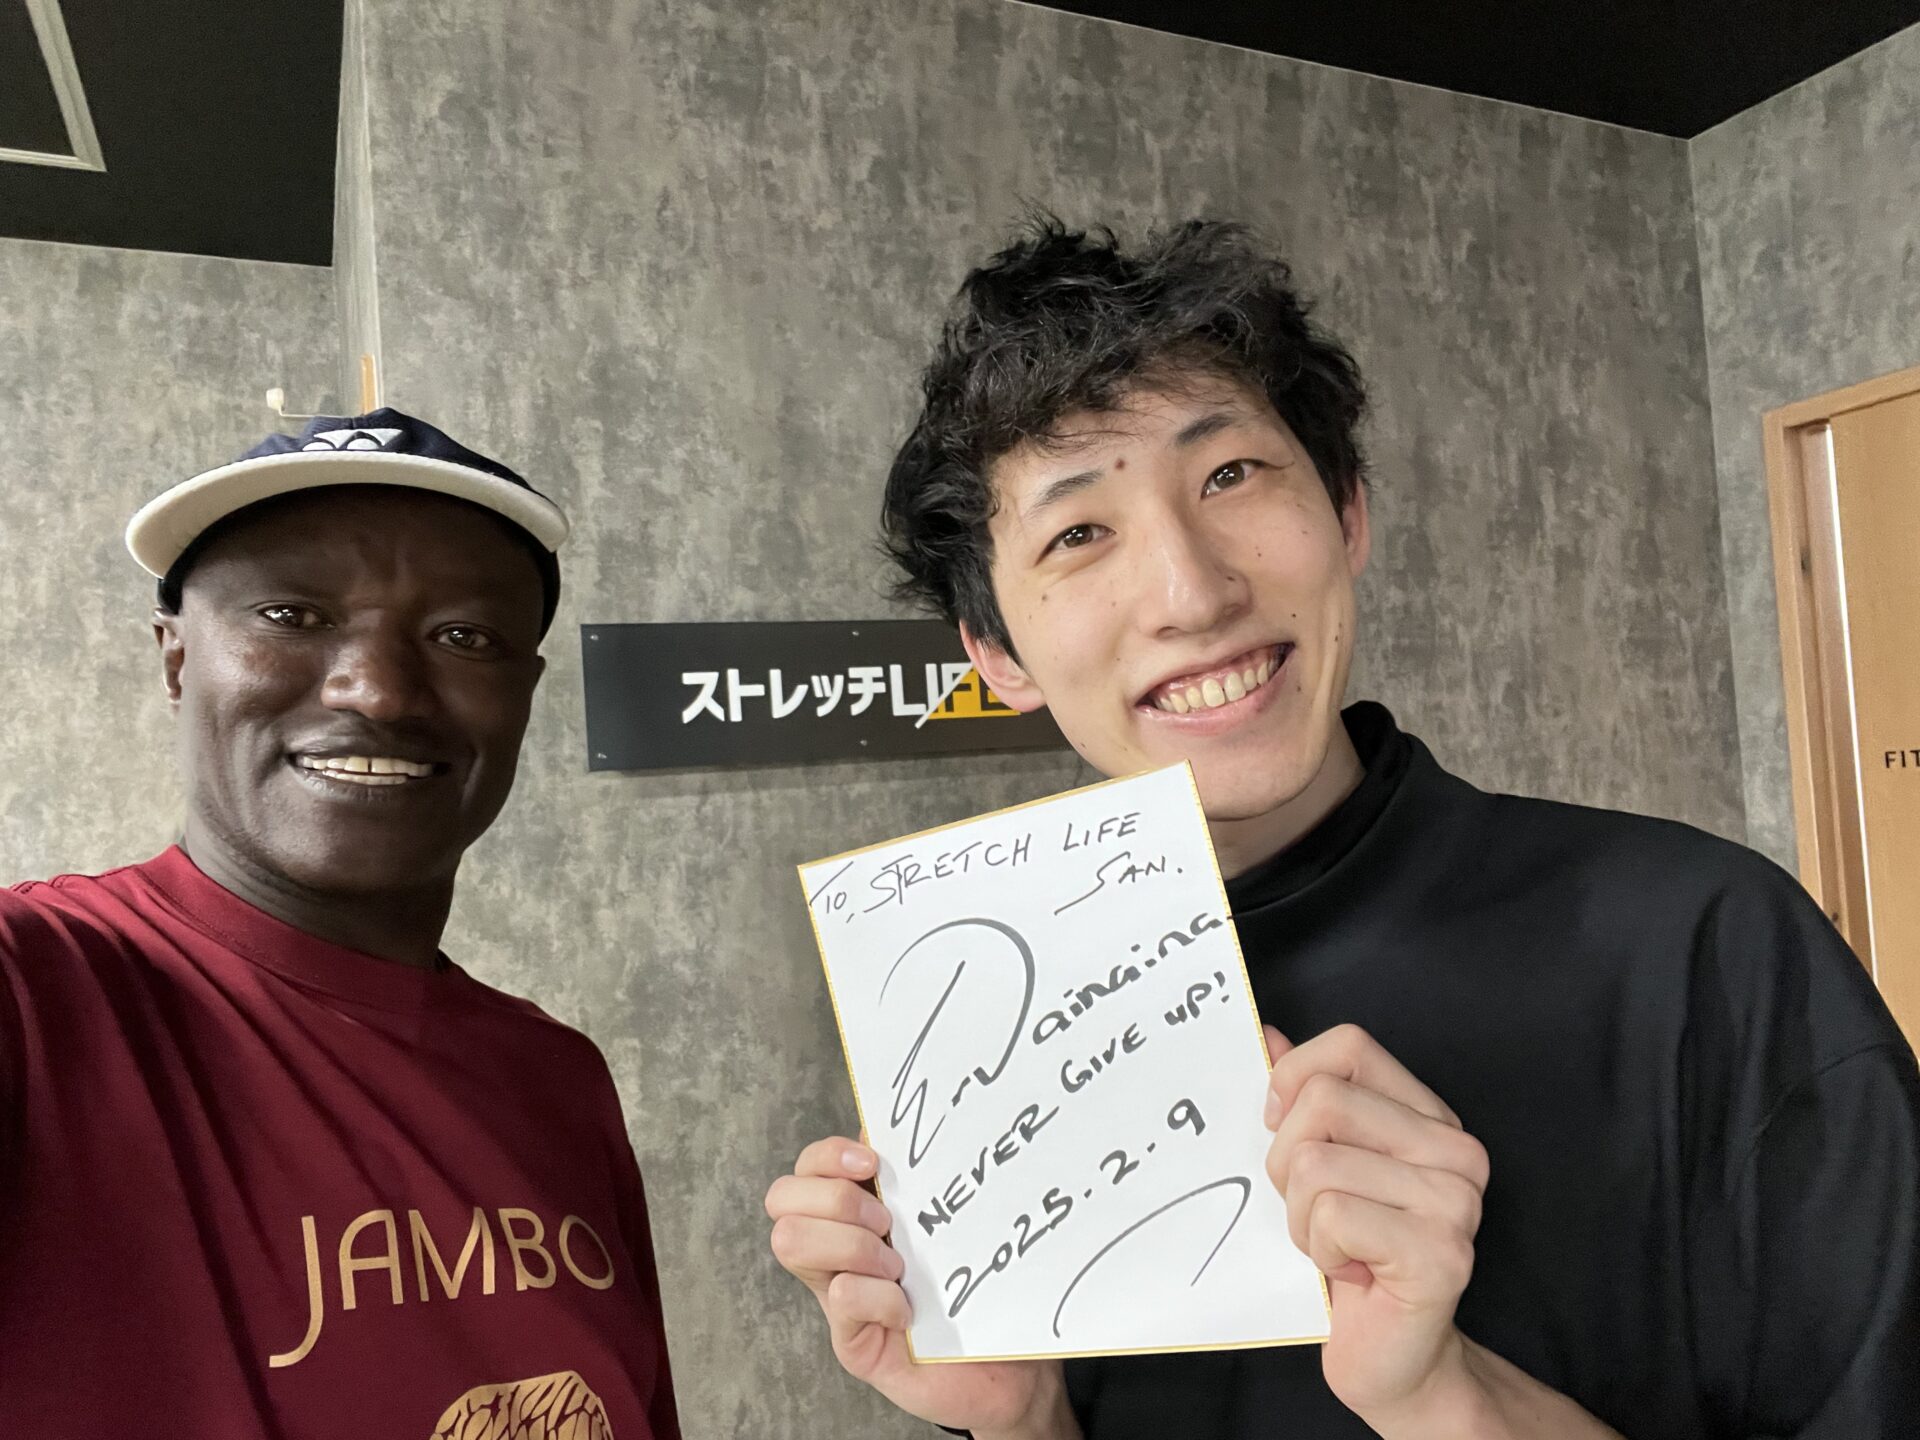 ストレッチLIFE
FIT
TO, STRETCH LIFE
SAN.
Wainaina
NEVER GIVE UP!
2025.2.9
JAMBO